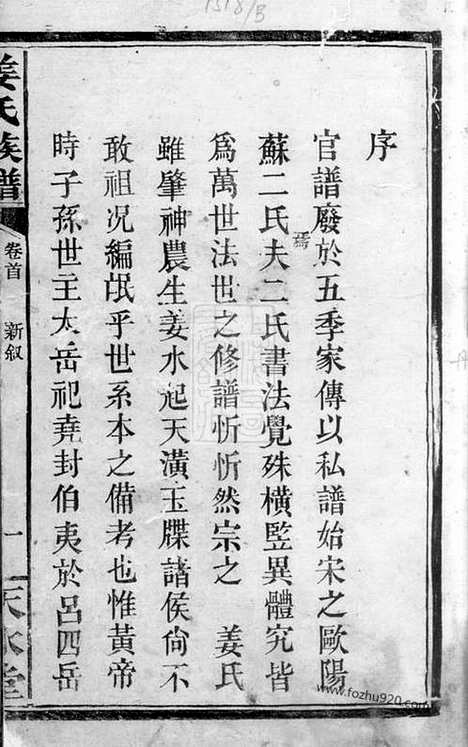 1518/B
序
官譜廢於五季家傳以私譜始宋之歐陽
蘇二氏夫二氏書法覺殊橫監異體究皆
焉
為萬世法世之修譜忻忻然宗之 姜氏
雖肇神農生姜水起天潢玉牒諸侯尙不
敢祖况編氓乎世系本之備考也惟黃帝
時子孫世主太岳祀堯封伯夷於呂四岳
姜氏族譜
卷首 新叙
一
天水堂
www.fozhu920.com